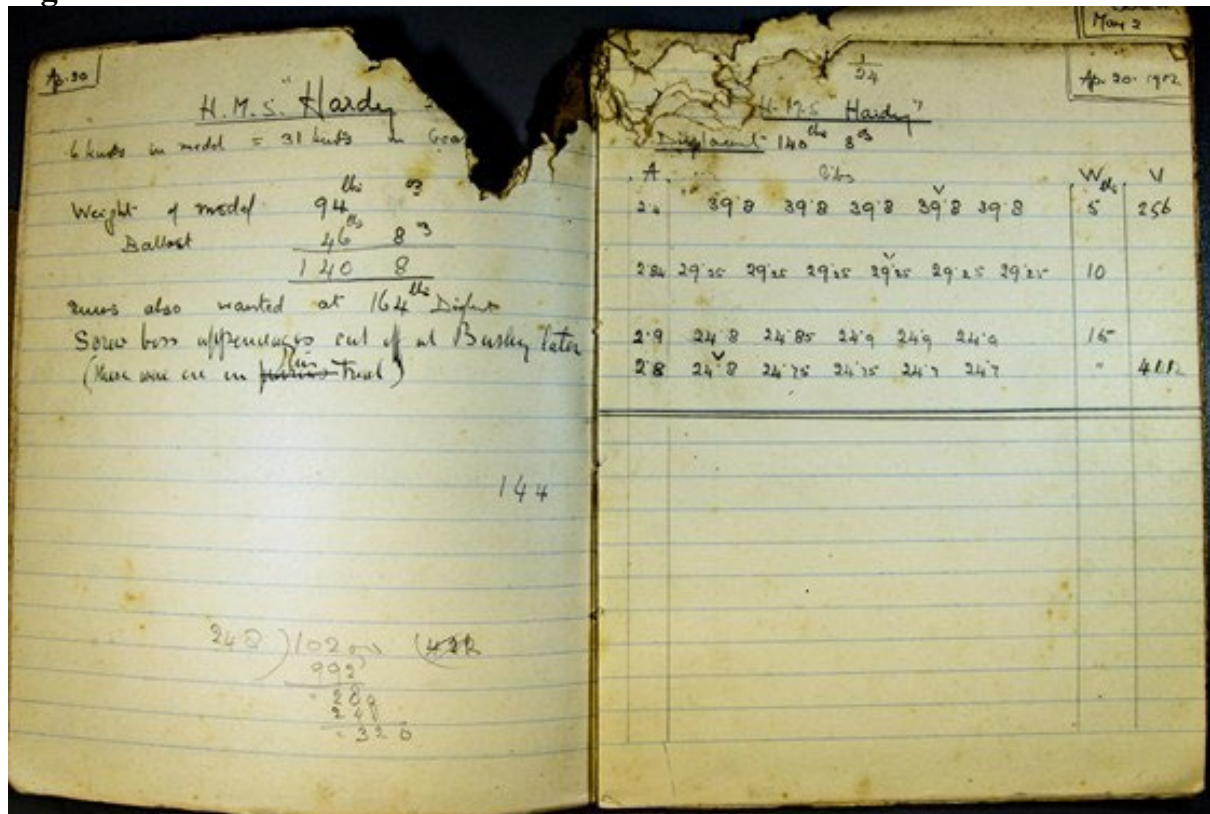 Ap. 20
H.M.S. "Hardy
6 knots in model = 31 knots in
lbs
Weight of model 94
Ballast 46 lbs 8
140 8
also wanted at 164 lbs
Screw boss appendages cut off at later
(these were on in this Trial)
144
248 ) 102 (412
992
28
248
320
May 2
1
24
Ap. 20. 1902
H.M.S Hardy"
Displacement 140 lbs 8 oz
A. W lbs V
2. 39.8 39.8 39.8 39.8 39.8 5 256
2.84 29.25 29.25 29.25 29.25 29.25 29.25 10
2.9 24.8 24.85 24.9 24.9 24.9 15
2.8 24.8 24.75 24.75 24.7 24.7 "